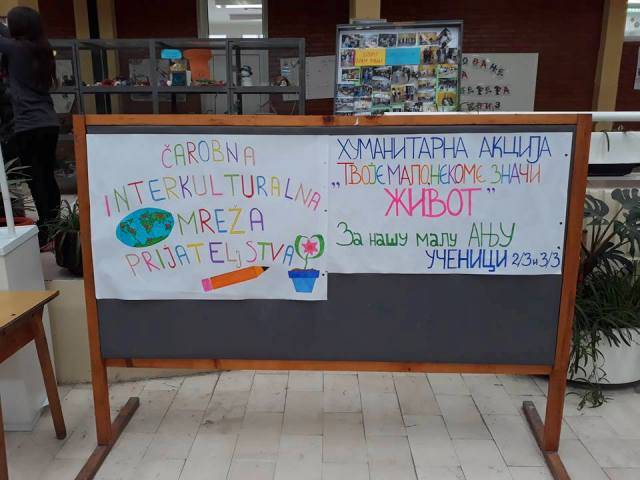 ČAROBNA
INTERKULTURALNA
MREŽA
PRIJATELJSTVA
ХУМАНИТАРНА АКЦИЈА
„ТВОЈЕ МАЛО НЕКОМЕ ЗНАЧИ
ЖИВОТ"
За нашу малу АЊУ
УЧЕНИЦИ 2/3 и 3/3